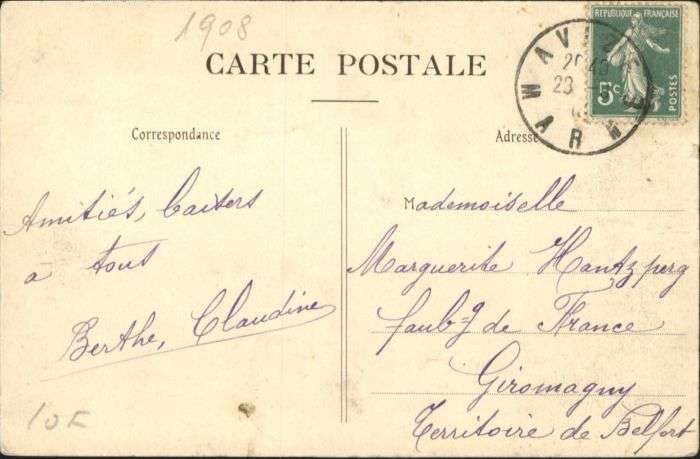 1908
CARTE POSTALE
Correspondance
Adresse
REPUBLIQUE FRANÇAISE
5c
POSTES
Amitiés, baisers
à tous
Berthe, Claudine
Mademoiselle
Marguerite Hantzperg
faub-g de France
Giromagny
Territoire de Belfort
10F